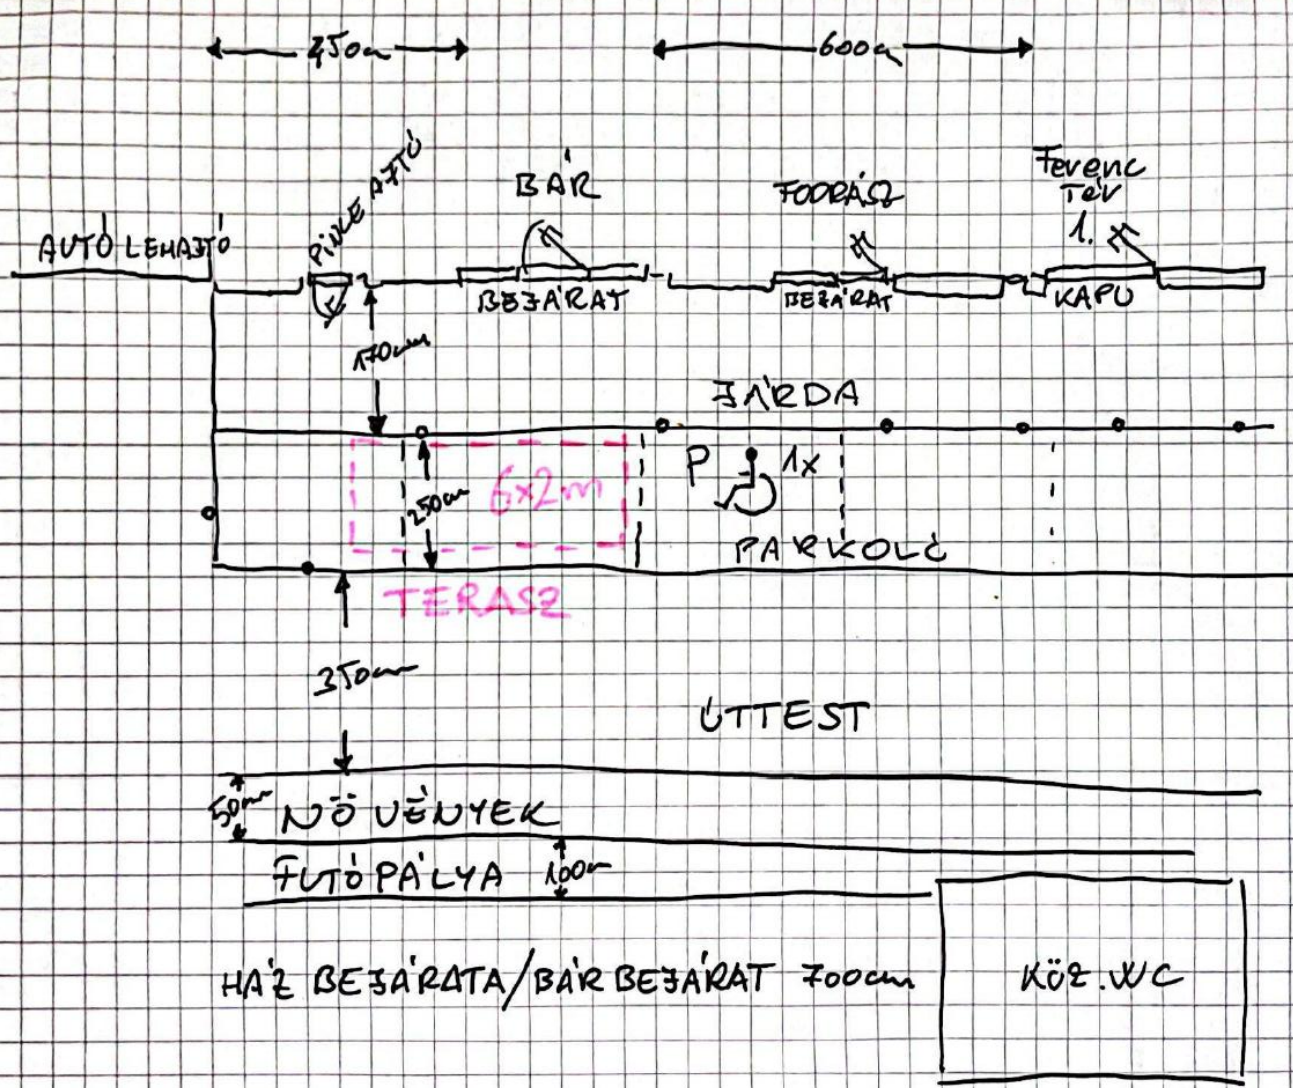 450cm
600cm
PINCE AJTÓ
BÁR
FODRÁSZ
Ferenc
Tér
1.
AUTÓ LEHAJTÓ
BEJÁRAT
BEJÁRAT
KAPU
170cm
JÁRDA
P
1x
6x2m
250cm
PARKOLÓ
TERASZ
350cm
ÚTTEST
50cm
NÖVÉNYEK
FUTÓPÁLYA
100cm
HÁZ BEJÁRATA/BÁR BEJÁRAT 700cm
KÖZ.WC